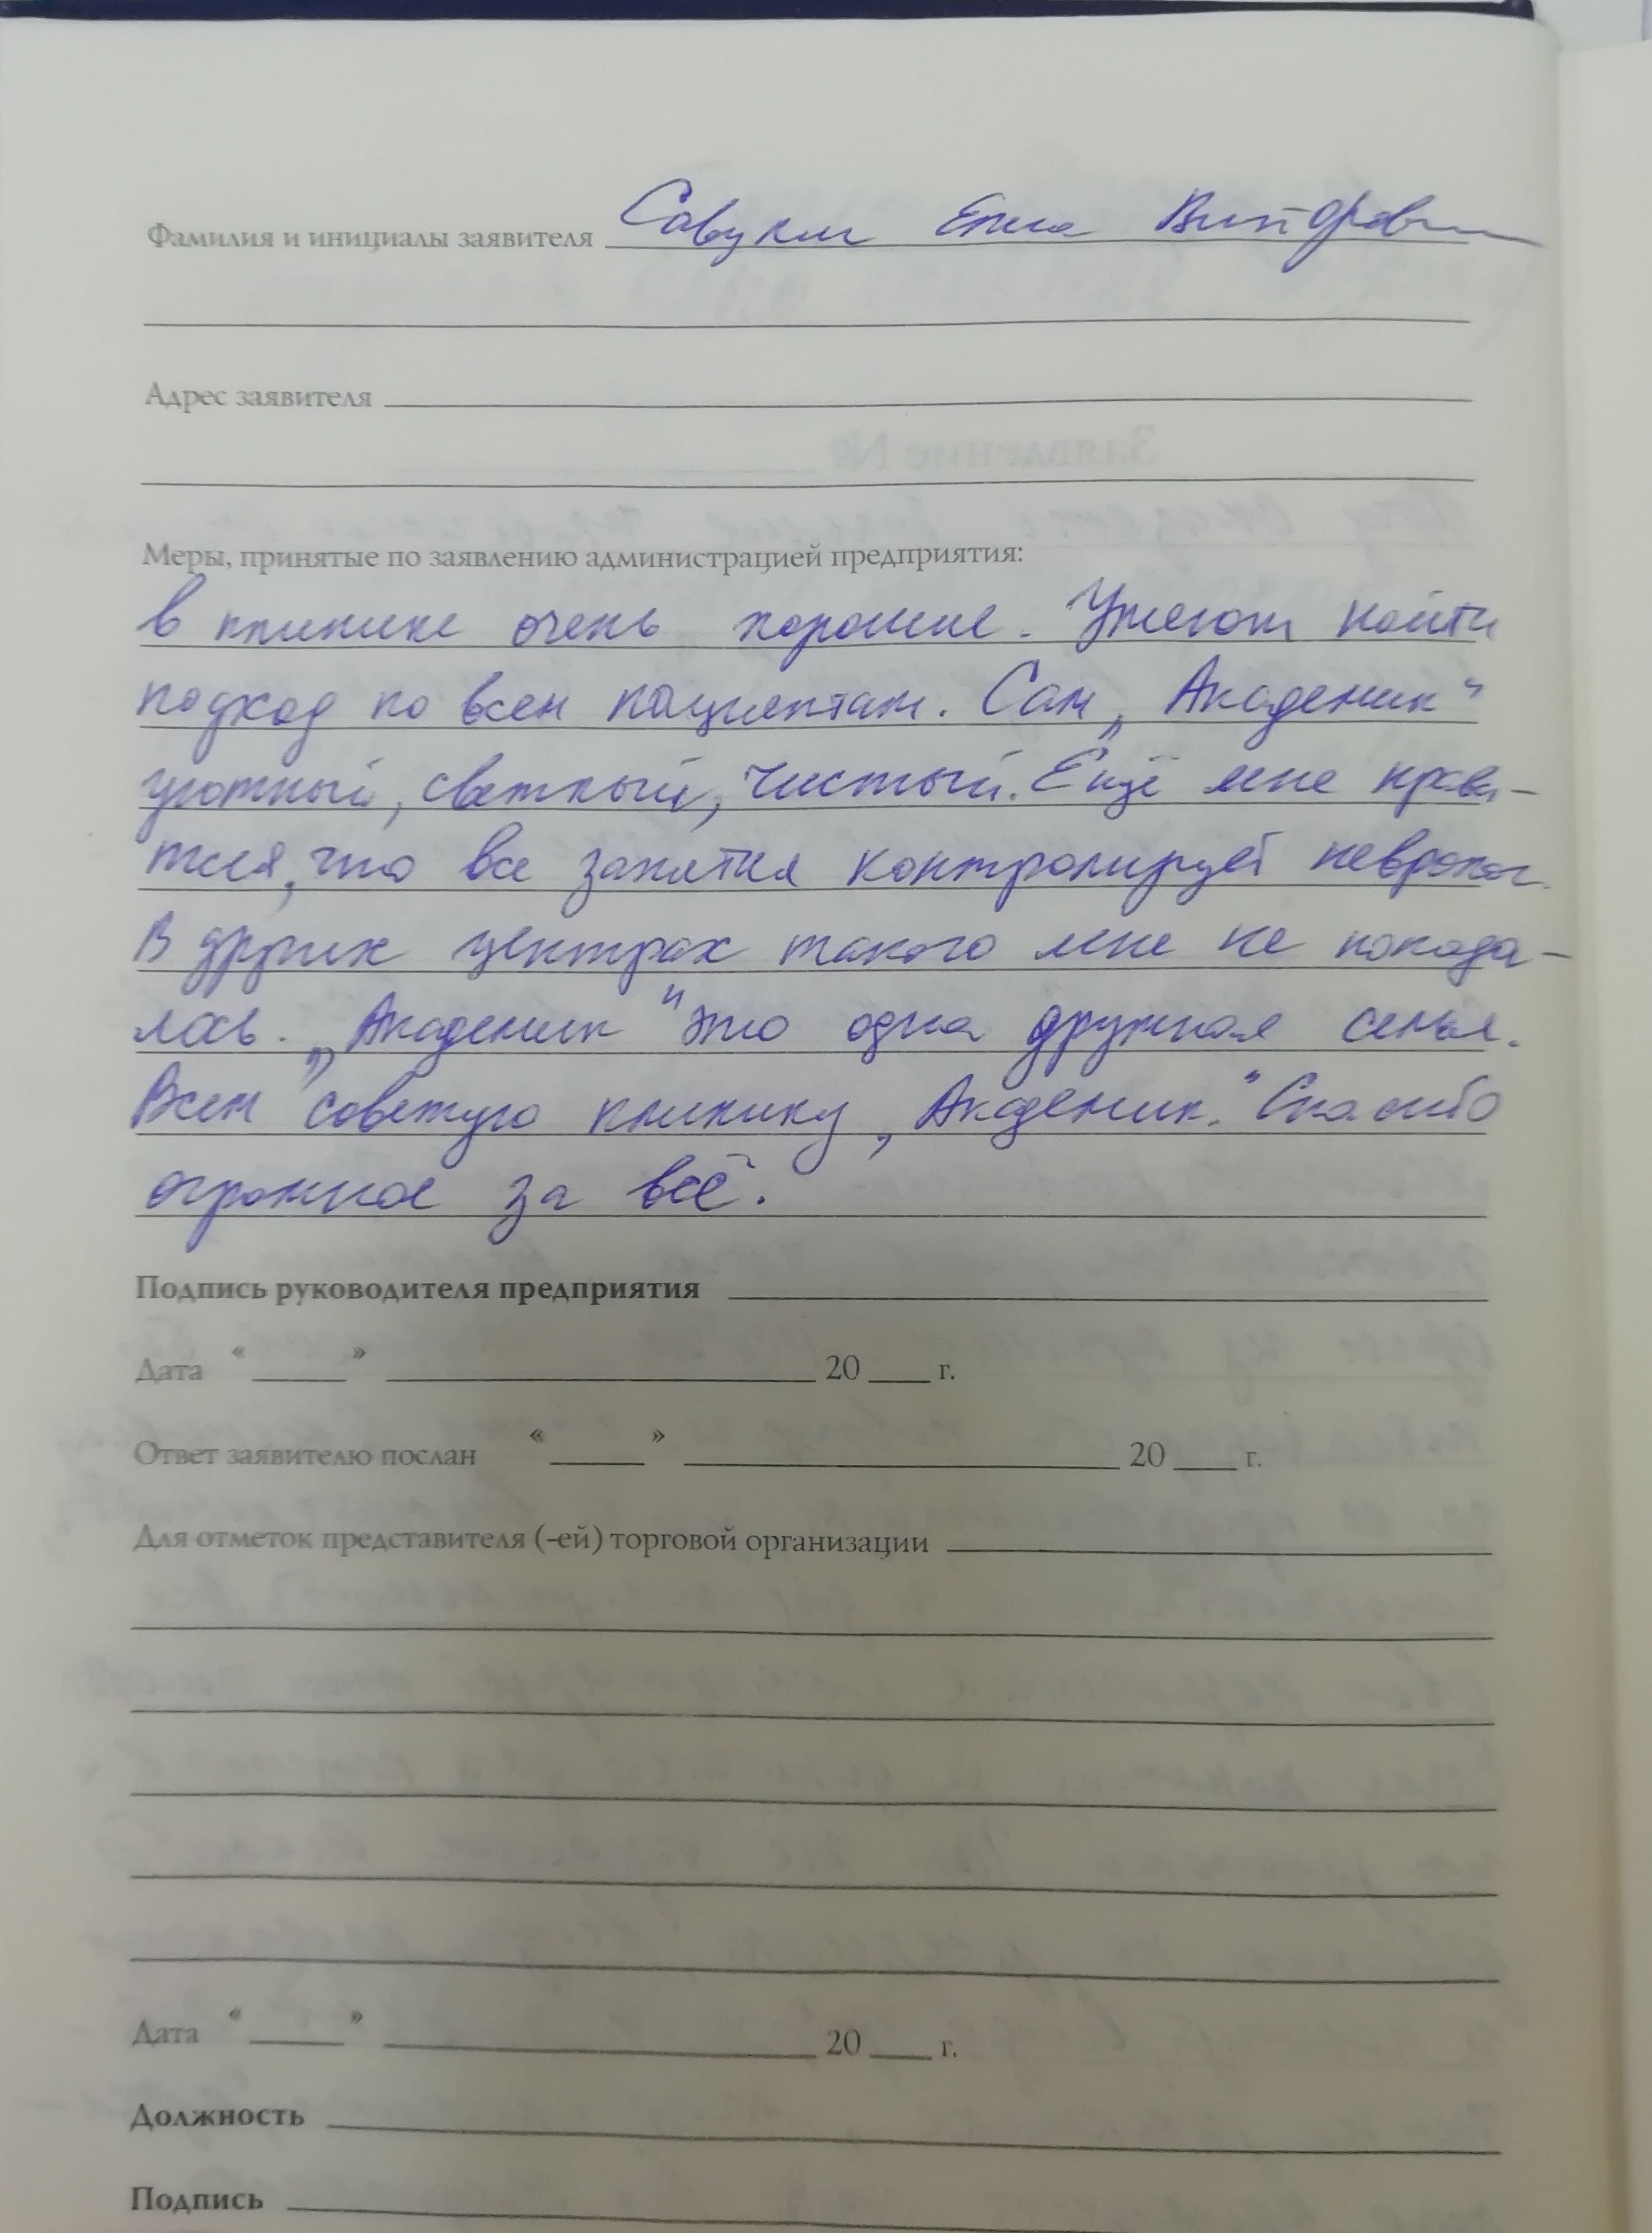 Фамилия и инициалы заявителя
Адрес заявителя
Заявление №
Меры, принятые по заявлению администрацией предприятия:
в клинике очень хорошие. Умеют найти
подход ко всем пациентам. Сам „Академик“
уютный, светлый, чистый. Ещё мне нрави-
тся, что все занятия контролирует невролог.
В других центрах такого мне не попада-
лось. „Академик“ это одна дружная семья.
Всем советую клинику „Академик.“ Спасибо
огромное за всё.
Подпись руководителя предприятия
Дата « » 20 г.
Ответ заявителю послан « » 20 г.
Для отметок представителя (-ей) торговой организации
Дата « » 20 г.
Должность
Подпись